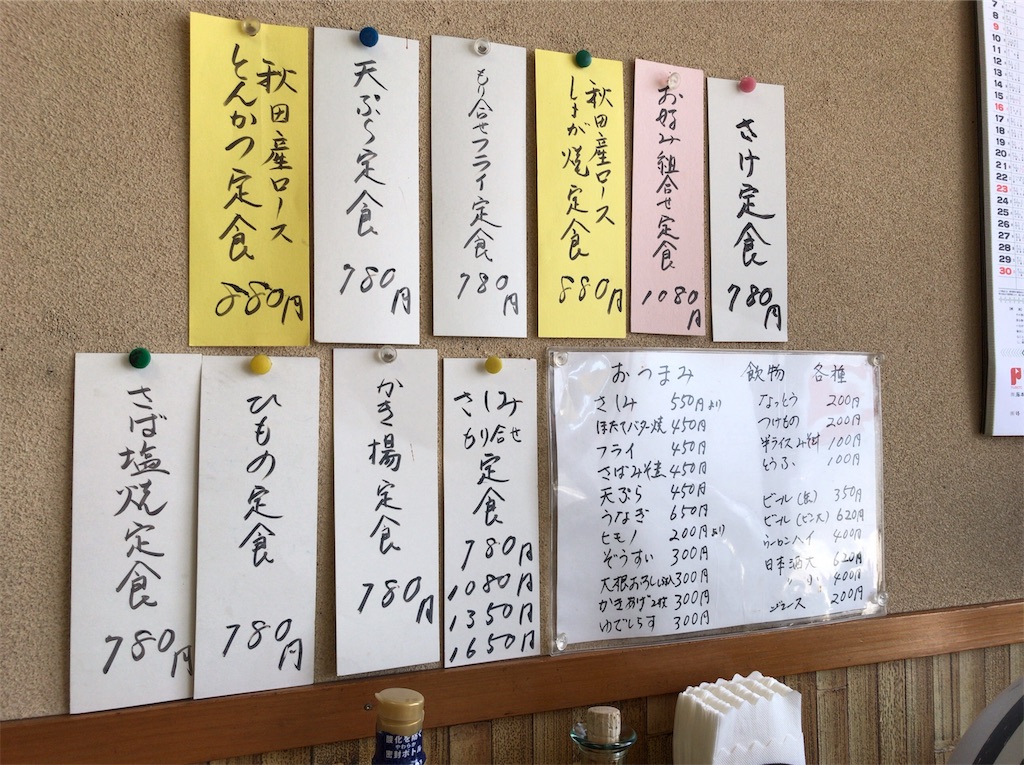 秋田産ロース
とんかつ定食
880円
天ぷら定食
780円
もり合せフライ定食
780円
秋田産ロース
しょうが焼定食
880円
お好み組合せ定食
1080円
さけ定食
780円
さば塩焼定食
780円
ひもの定食
780円
かき揚定食
780円
さしみ
もり合せ
定食
780円
1080円
1350円
1650円
おつまみ
さしみ 550円より
ほたてバター焼 450円
フライ 450円
さばみそ煮 450円
天ぷら 450円
うなぎ 650円
ヒモノ 200円より
ぞうすい 300円
大根おろし 300円
かきあげ2枚 300円
ゆでしらす 300円
飲物 各種
なっとう 200円
つけもの 200円
半ライスみそ汁 100円
とうふ 100円
ビール(缶) 350円
ビール(ビン大) 620円
ウーロンハイ 400円
日本酒大 620円
〃 小 400円
ジュース 200円
7
8
9
10
11
12
13
14
15
16
17
18
19
20
21
22
23
24
25
26
27
28
29
30
酸化を防ぐ
やわらか
密封ボトル